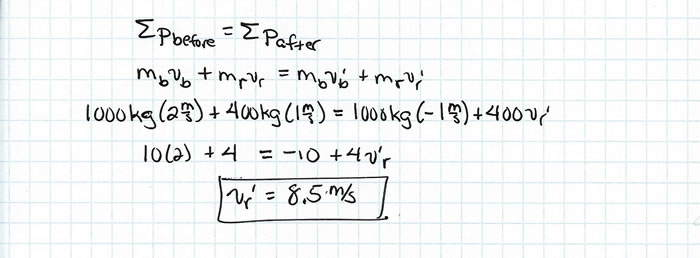 Σp_before = Σp_after
m_b v_b + m_r v_r = m_b v_b' + m_r v_r'
1000kg(2 m/s) + 400kg(1 m/s) = 1000kg(-1 m/s) + 400 v_r'
10(2) + 4 = -10 + 4v_r'
v_r' = 8.5 m/s